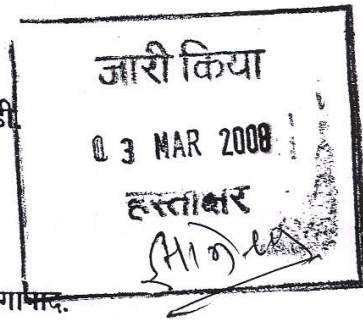 जारी किया
03 MAR 2008
हस्ताक्षर